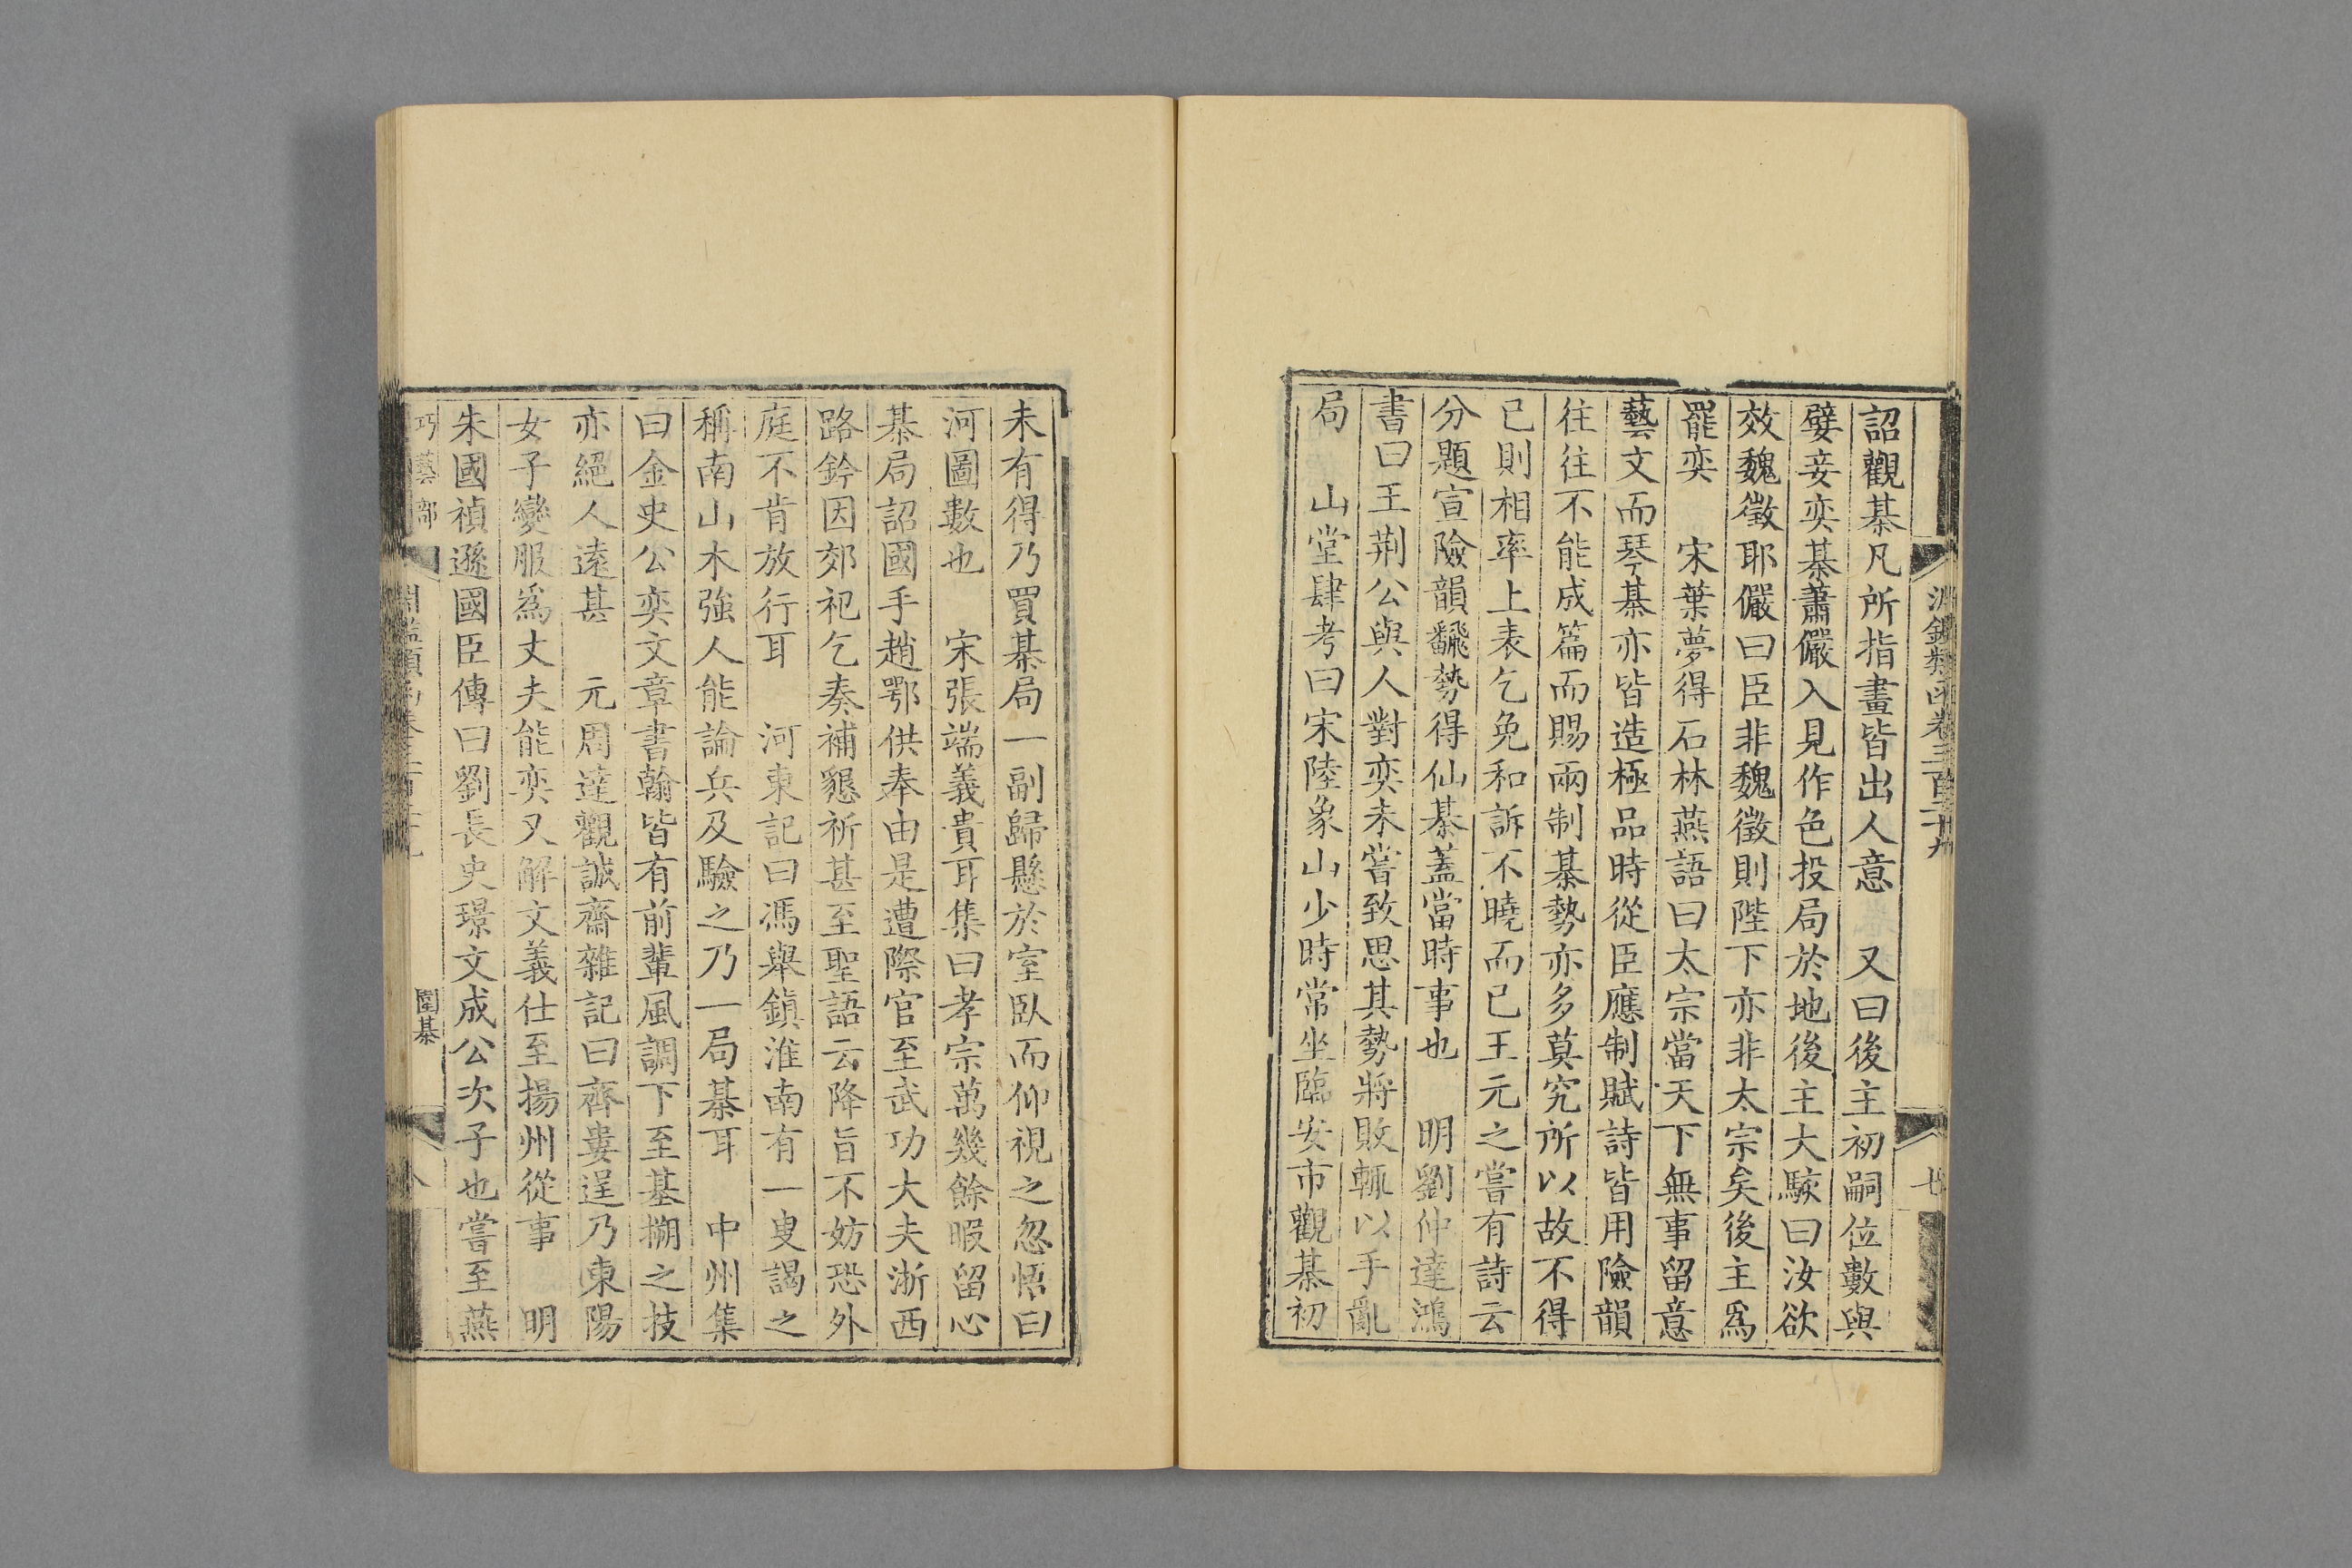 淵鑑類函卷三百二十九
詔觀棊凡所指畫皆出人意　又曰後主初嗣位數與
嬖妾奕棊蕭儼入見作色投局於地後主大駭曰汝欲
效魏徵耶儼曰臣非魏徵則陛下亦非太宗矣後主爲
罷奕　宋葉夢得石林燕語曰太宗當天下無事留意
藝文而琴棊亦皆造極品時從臣應制賦詩皆用險韻
往往不能成篇而賜兩制棊勢亦多莫究所以故不得
已則相率上表乞免和訴不曉而已王元之嘗有詩云
分題宣險韻飜勢得仙棊蓋當時事也　明劉仲達鴻
書曰王荆公與人對奕未嘗致思其勢將敗輒以手亂
局　山堂肆考曰宋陸象山少時常坐臨安市觀棊初
未有得乃買棊局一副歸懸於室臥而仰視之忽悟曰
河圖數也　宋張端義貴耳集曰孝宗萬幾餘暇留心
棊局詔國手趙鄂供奉由是遭際官至武功大夫浙西
路鈐因郊祀乞奏補懇祈甚至聖語云降旨不妨恐外
庭不肯放行耳　河東記曰馮舉鎮淮南有一叟謁之
稱南山木強人能論兵及驗之乃一局棊耳　中州集
曰金史公奕文章書翰皆有前輩風調下至棊槊之技
亦絕人遠甚　元周達觀誠齋雜記曰齊婁逞乃東陽
女子變服爲丈夫能奕又解文義仕至揚州從事　明
朱國禎遜國臣傳曰劉長史璟文成公次子也嘗至燕
巧藝部
圍棊